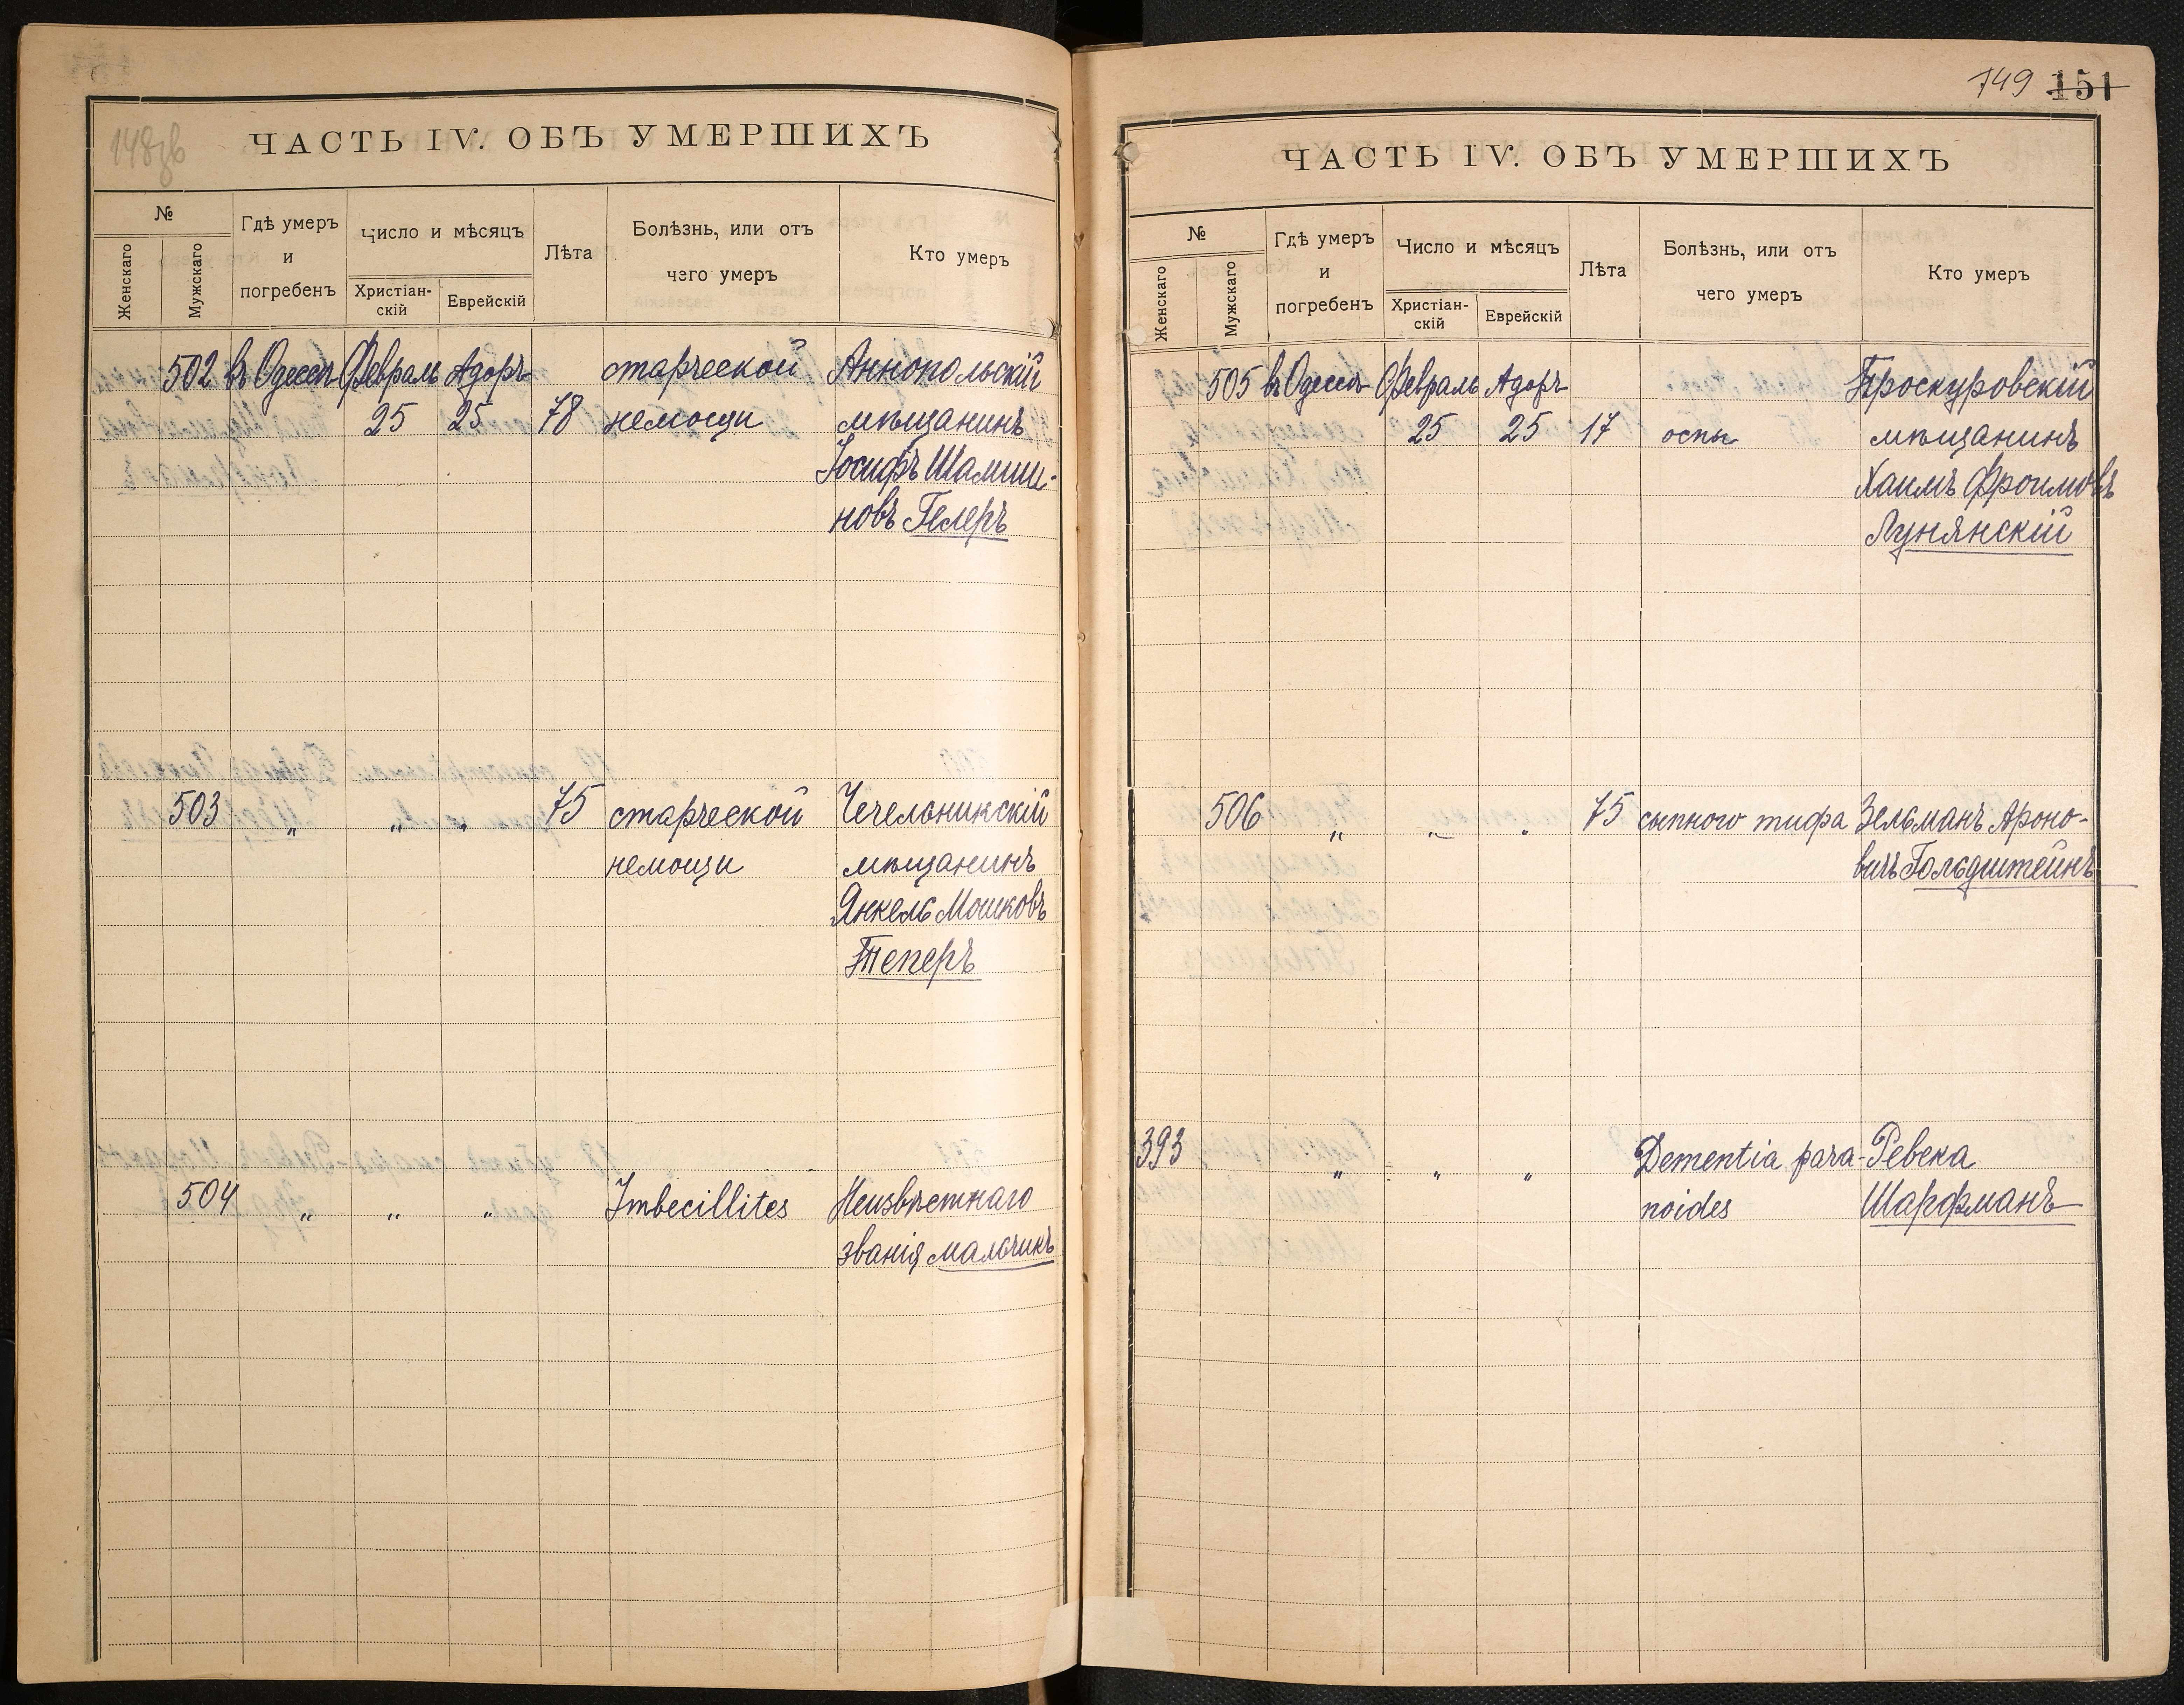 148зв
ЧАСТЬ IV. ОБЪ УМЕРШИХЪ
№
Женскаго
Мужскаго
Гдѣ умеръ
и
погребенъ
Число и мѣсяцъ
Христіан-
скій
Еврейскій
Лѣта
Болѣзнь, или отъ
чего умеръ
Кто умеръ
502 въ Одессѣ Февраль Адоръ старческой Аннопольскій
25 25 78 немощи мѣщанинъ
Іосифъ Шамши-
новъ Гелеръ
503 „ „ „ 75 старческой Чечельникскій
немощи мѣщанинъ
Янкель Мошковъ
Теперъ
504 „ „ „ Imbecillites Неизвѣстнаго
званія мальчикъ
149 151
ЧАСТЬ IV. ОБЪ УМЕРШИХЪ
№
Женскаго
Мужскаго
Гдѣ умеръ
и
погребенъ
Число и мѣсяцъ
Христіан-
скій
Еврейскій
Лѣта
Болѣзнь, или отъ
чего умеръ
Кто умеръ
505 въ Одессѣ Февраль Адоръ Проскуровскій
25 25 17 оспы мѣщанинъ
Хаимъ Фроимовъ
Лунянскій
506 „ „ „ 75 сыпного тифа Зельманъ Ароно-
вичъ Гольдштейнъ
393 „ „ „ Dementia para- Ревека
noides Шарфманъ